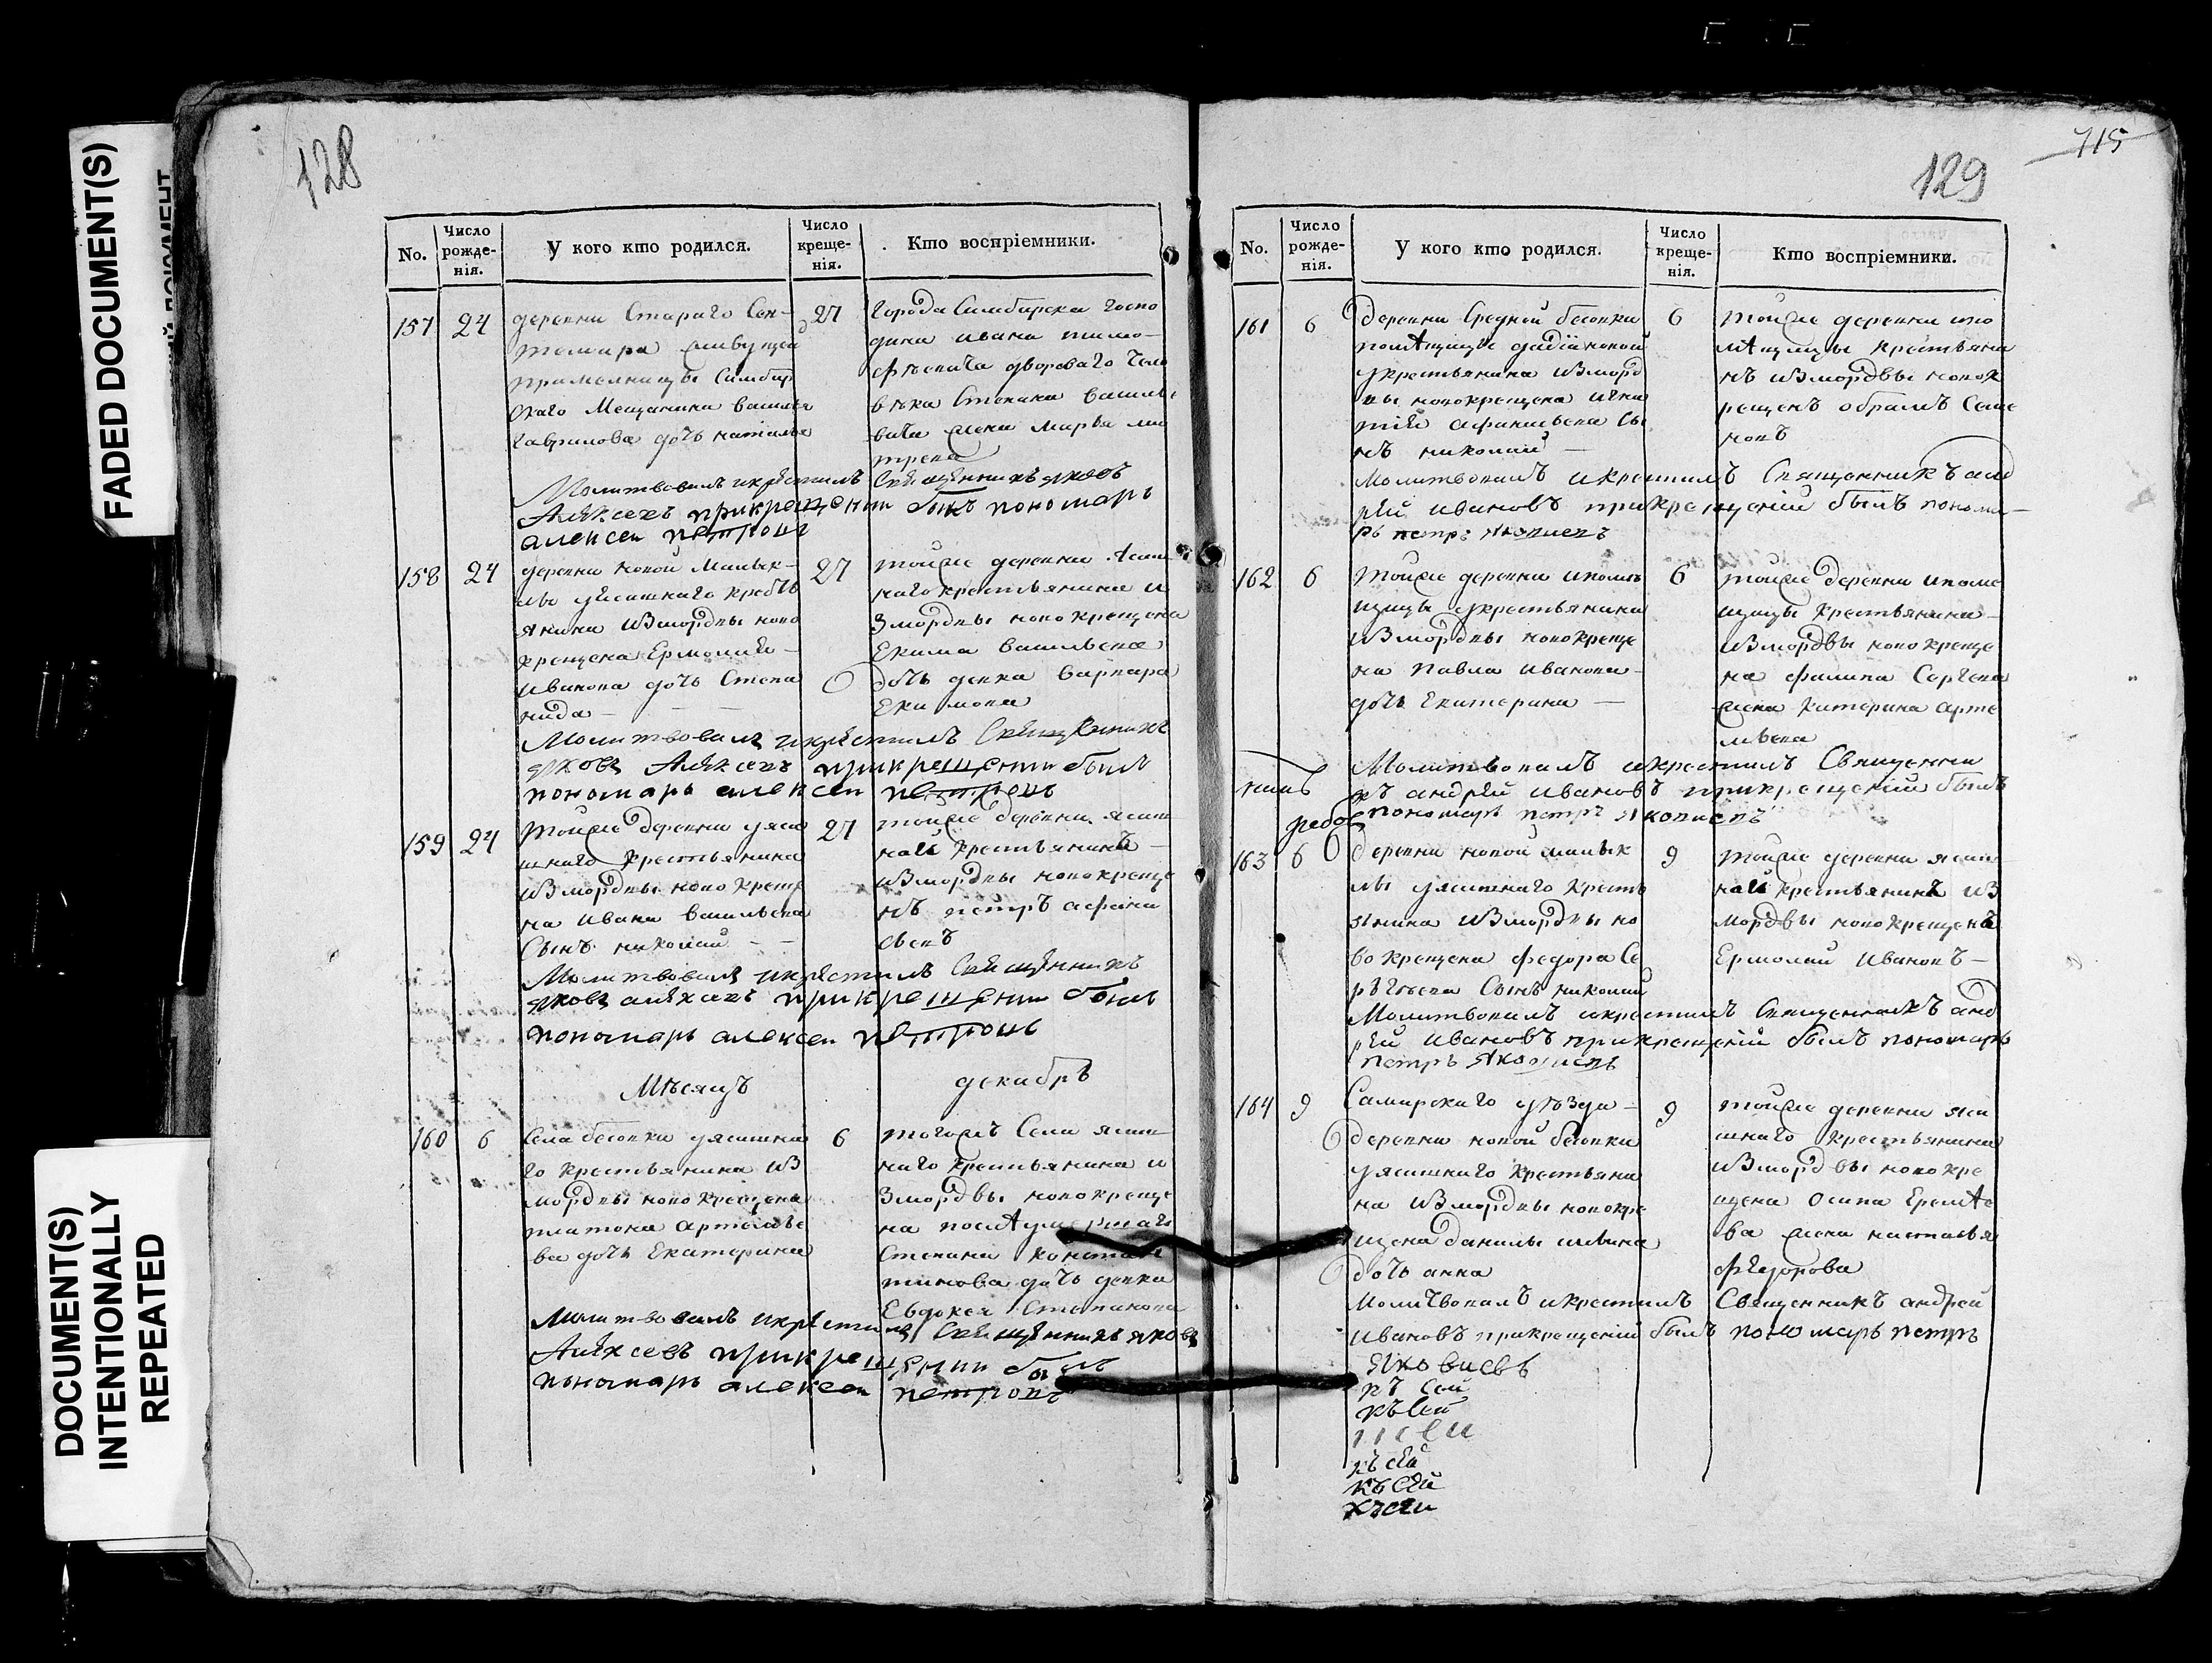 FADED DOCUMENT(S)
DOCUMENT(S)
INTENTIONALLY
REPEATED
128
No.
Число рожде-нія.
У кого кто родился.
Число креще-нія.
Кто воспріемники.
157
24
деревни Стараго Сен-
темира живущей
примелницы Симбир
скаго Мещанина василья
гаврилова дочь наталья
27
города Симбирска госпо
дина ивана тимо-
фѣевича двороваго чело
вѣка Степана василь
вича жена марѳа ми
трева
Молитвовалъ икрестилъ Священникъ яковъ
Алексевъ прикрещении былъ пономарь
алексеи петровъ
158
24
деревни новой Малык-
лы уясашнаго кресть
янина измордвы ново
крещена Ермолая-
иванова дочь Степа
нида
27
тойже деревни Ясаш
наго крестьянина и
змордвы новокрещена
Екима васильева
дочь девка варвара
Екимова
Молитвовалъ икрестилъ Священникъ
яковъ Алексевъ прикрещении былъ
пономарь алексеи петровъ
159
24
тойже деревни уяса
шнаго крестьянина
измордвы новокреще
на ивана васильева
Сынъ николай
27
тойже деревни ясаш
най крестьянинъ
измордвы новокреще
нъ петръ афана
сьевъ
Молитвовалъ икрестилъ Священникъ
яковъ алексевъ прикрещении былъ
пономарь алексеи петровъ
Мѣсяцъ декабръ
160
6
Села бесовки уясашна
го крестьянина из
мордвы новокрещена
платона артемье
ва дочь Екатерина
6
тогожъ Села ясаш
наго крестьянина и
змордвы новокреще
на послѣумершаго
Степана констан
тинова дочь девка
Евдокея Степанова
Молитвовалъ икрестилъ Священникъ яковъ
Алексевъ прикрещении былъ
пономарь алексеи петровъ
715
129
No.
Число рожде-нія.
У кого кто родился.
Число креще-нія.
Кто воспріемники.
161
6
деревни Средней бесовки
помѣщицы
укрестьянина изморд
вы новокрещена игна
тия афанасьева Сы
нъ николай
6
тойже деревни ипо
мѣщицы крестьяни
нъ измордвы новок
рещенъ абрамъ Семе
новъ
Молитвовалъ икрестилъ Священникъ анд
рей ивановъ прикрещеній былъ понома-
рь петръ яковлевъ
162
6
тойже деревни ипомѣ
щицы укрестьянина
измордвы новокреще
на павла иванова
дочь Екатерина
6
тойже деревни ипоме
щицы крестьянина
измордвы новокреще
на филипа Сергева
жена катерина арте
мьева
Молитвовалъ икрестилъ Священни
къ андрей ивановъ прикрещеній былъ
пономарь петръ яковлевъ
163
6
деревни новой малык
лы уясашнаго кресть
янина измордвы но
вокрещена федора Се
ргѣева Сынъ николай
9
тойже деревни ясаш
най крестьянинъ из
мордвы новокрещенъ
Ермолай ивановъ
Молитвовалъ икрестилъ Священникъ анд
рей ивановъ прикрещеній былъ пономарь
петръ яковлевъ
164
9
Самарскаго уѣзда
деревни новой бесовки
уясашнаго крестьяни
на измордвы новокре
щена данилы
дочь анна
9
тойже деревни яса
шнаго крестьянина
измордвы новокре
щена осипа Еремѣе
ва жена наталья
федорова
Молитвовалъ икрестилъ Священникъ андрей
ивановъ прикрещеній былъ пономарь петръ
яковлевъ
къ сей
къ сей
къ сей
къ сей
къ сей